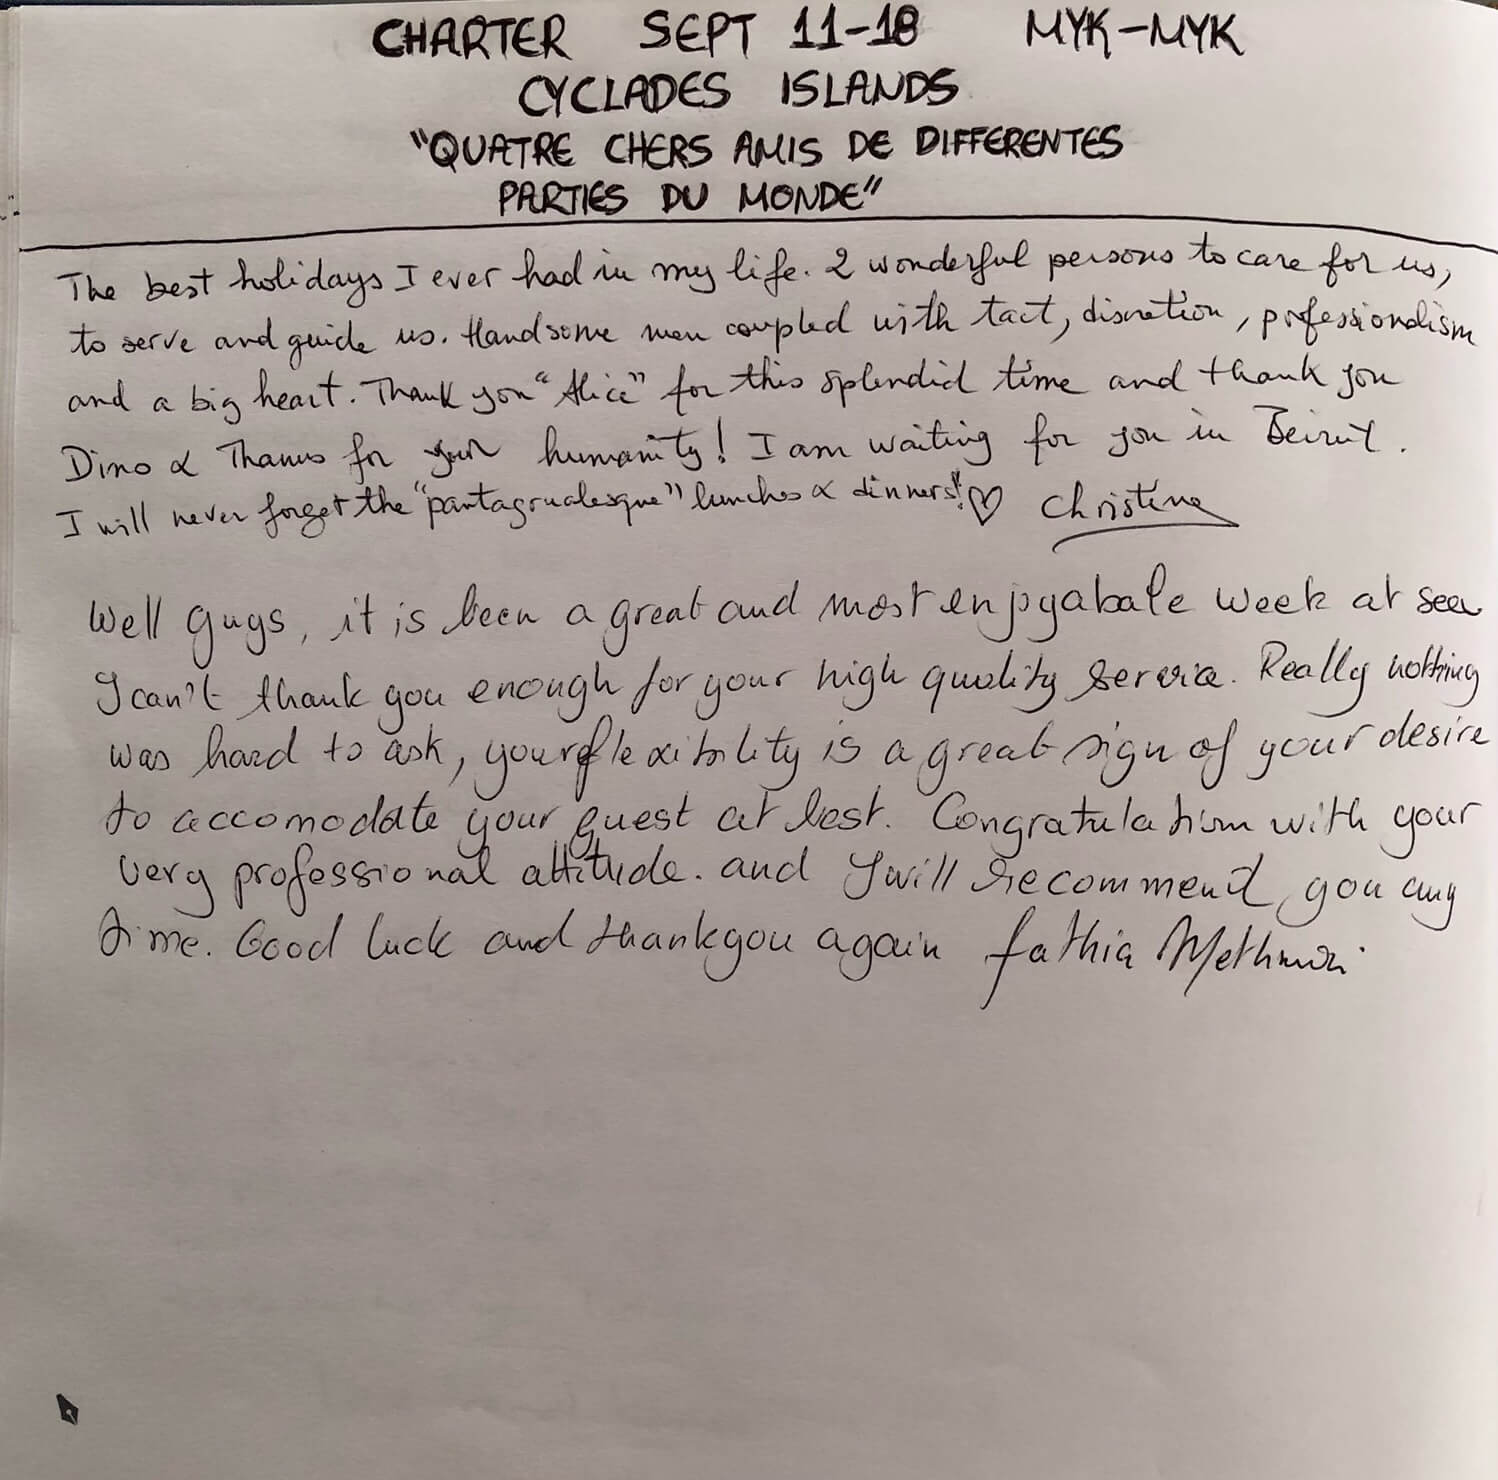 CHARTER SEPT 11-18 MYK-MYK
CYCLADES ISLANDS
"QUATRE CHERS AMIS DE DIFFERENTES
PARTIES DU MONDE"
The best holidays I ever had in my life. 2 wonderful persons to care for us,
to serve and guide us. Handsome men coupled with tact, discretion, professionalism
and a big heart. Thank you "Alice" for this splendid time and thank you
Dino & Thanos for your humanity! I am waiting for you in Beirut.
I will never forget the "pantagrualesque" lunches & dinners! ♡ Christine
Well guys, it is been a great and most enjoyabale week at sea
I can't thank you enough for your high quality service. Really nothing
was hard to ask, your flexibility is a great sign of your desire
to accomodate your guest at best. Congratulation with your
very professional attitude. and I will recommend you any
time. Good luck and thank you again fathia